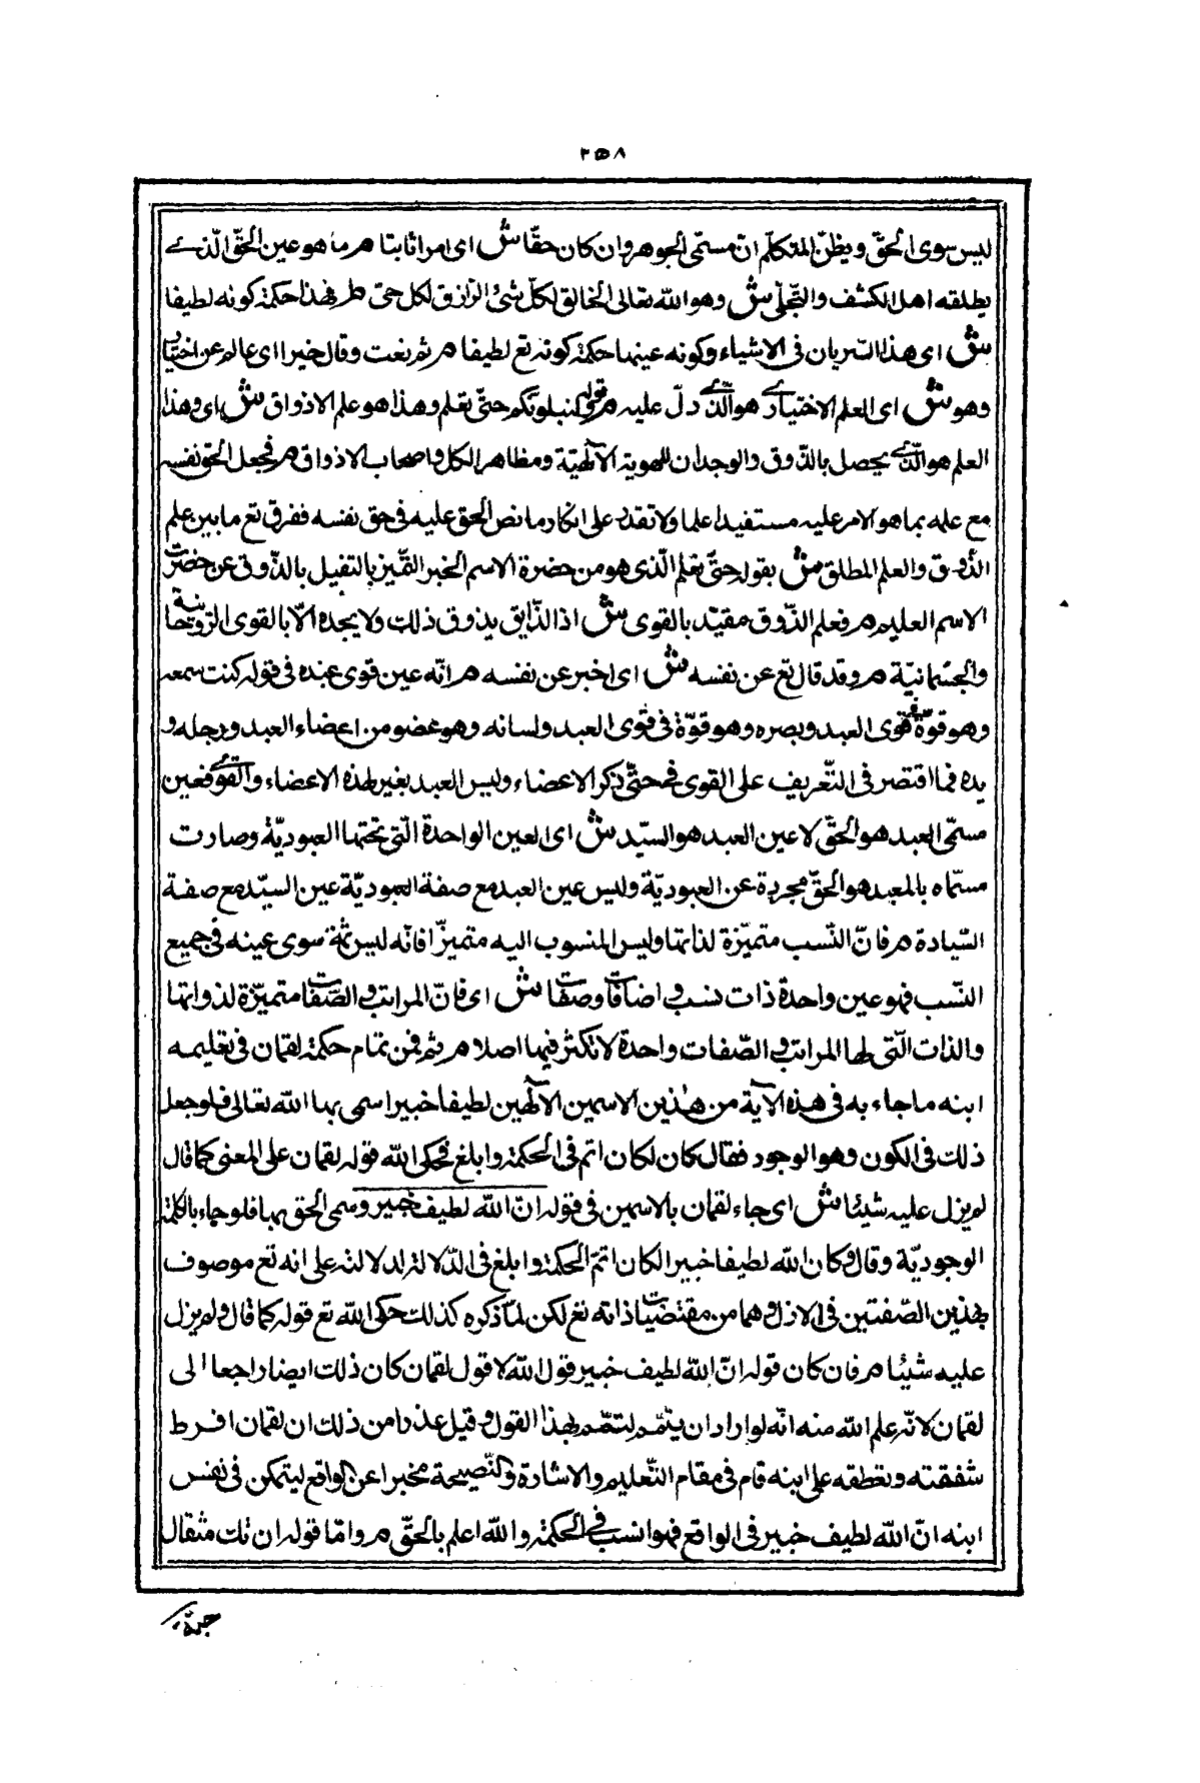 ٢٥٨
ليس سوى الحقّ ويظنّ المتكلّم انّ مسمّى الجوهر وان كان حقّا ش اى امرا ثابتا م ما هو عين الحقّ الّذى
يطلقه اهل الكشف والتّجلّى ش وهو الله تعالى الخالق لكلّ شئ الرازق لكل حى م فهذا حكمة كونه لطيفا
ش اى هذا السّريان فى الاشياء وكونه عينها حكمة كونه تع لطيفا م ثم نعت وقال خبيرا اى عالم عن اختبار
وهو ش اى العلم الاختبارى هو الّذى دلّ عليه م قوله لنبلونّكم حتّى نعلم وهذا هو علم الاذواق ش اى وهذا
العلم هو الّذى يحصل بالذّوق والوجدان للهوية الآلهيّة ومظاهر الكل واصحاب الاذواق م فجعل الحق نفسه
مع علمه بما هو الامر عليه مستفيدا علما ولا تقدر على انكار ما نص الحق عليه فى حق نفسه ففرق تع ما بين علم
الذّوق والعلم المطلق ش بقوله حتّى نعلم الّذى هو من حضرة الاسم الخبير المتميز بالتفيل بالذّوق عن حضرت
الاسم العليم م فعلم الذّوق مقيّد بالقوى ش اذ الذّايق يذوق ذلك ولا يجده الّا بالقوى الرّوحانية
والجسمانيّة م وقد قال تع عن نفسه ش اى اخبر عن نفسه م انّه عين قوى عبده فى قوله كنت سمعه
وهو قوّة من قوى العبد وبصره وهو قوّة من قوى العبد ولسانه وهو عضو من اعضاء العبد ورجله و
يده فما اقتصر فى التّعريف على القوى فحتّى ذكر الاعضاء وليس العبد بغير لهذه الاعضاء والقوى فعين
مسمّى العبد هو الحقّ لا عين العبد هو السيّد ش اى العين الواحدة الّتى تحتها العبوديّة وصارت
مسمّاه بالعبد هو الحقّ مجردة عن العبوديّة وليس عين العبد مع صفة العبوديّة عين السيّد مع صفة
السّيادة م فانّ النّسب متميّزة لذاتها وليس المنسوب اليه متميزّا فانّه ليس ثمّة سوى عينه فى جميع
النّسب فهو عين واحدة ذات نسب و اضافات وصفات ش اى فانّ المراتب و الصّفات متميزّة لذواتها
والذات الّتى لها المراتب و الصّفات واحدة لا تكثر فيها اصلا م ثم فمن تمام حكمة لقمان فى تعليمه
ابنه ما جاء به فى هذه الآية من هذين الاسمين الآلهين لطيفا خبيرا سمى بهما الله تعالى فلو جعل
ذلك فى الكون وهو الوجود فقال كان لكان اتم فى الحكمة وابلغ فحكى الله قوله لقمان على المعنى كما قال
لم يزل عليه شيئا ش اى جاء لقمان بالاسمين فى قوله انّ الله لطيف خبير وسمى الحق بهما فلو جاء بالكلمة
الوجوديّة وقال وكان الله لطيفا خبيرا لكان اتمّ الحكمة وابلغ فى الدّلالة لدلالته على انه تع موصوف
بهذين الصّفتين فى الازل وهما من مقتضيات ذاته تع لكن لمّا ذكره كذلك حكى الله تع قوله كما قال ولم يزل
عليه شيئا م فان كان قوله انّ الله لطيف خبير قول الله لا قول لقمان كان ذلك ايضا راجعا الى
لقمان لانّه علم الله منه انّه لو اراد ان يتمّم لتمّم بهذا القول و قيل عذرا من ذلك ان لقمان افرط
شفقته وتعطفه على ابنه قام فى مقام التّعليم والاشارة والنّصيحة مخبرا عن الواقع ليتمكن فى نفس
ابنه انّ الله لطيف خبير فى الواقع فهو انسب فى الحكمة والله اعلم بالحقّ م وامّا قوله ان تك مثقال
حبّة